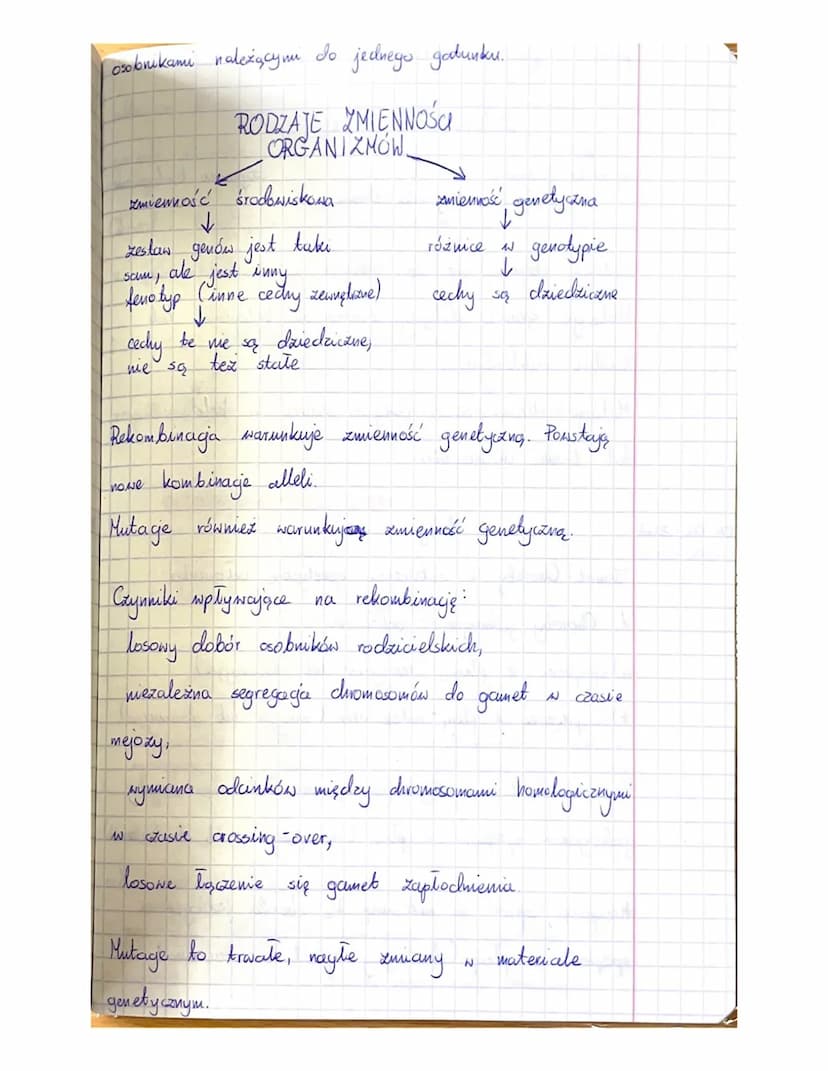 osobnikami należącymi do jednego gatunku.
RODZAJE ZMIENNOŚCI
ORGANIZMÓW
zmienność środowiskowa
zmienność genetyczna
zestaw genów jest taki
sam, ale jest inny
fenotyp (inne cechy zewnętrzne)
różnice w genotypie
cechy są dziedziczne
cechy te nie są dziedziczne,
nie są też stałe
Rekombinacja warunkuje zmienność genetyczną. Powstają
nowe kombinacje alleli.
Mutacje również warunkują zmienność genetyczną.
Czynniki wpływające na rekombinację:
losowy dobór osobników rodzicielskich,
niezależna segregacja chromosomów do gamet w czasie
mejozy,
wymiana odcinków między chromosomami homologicznymi
w czasie crossing-over,
losowe łączenie się gamet zapłodnienia.
Mutacje to trwałe, nagłe zmiany w materiale
genetycznym.